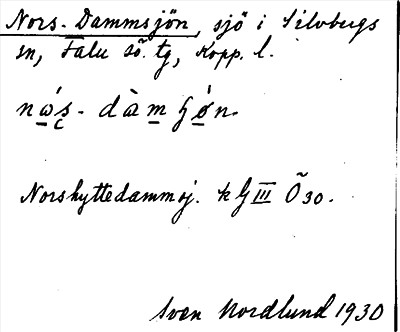 Nors-Dammsjön, sjö i Silvbergs
sn, Falu sö. tg, Kopp. l.
Norshyttedammsj. k G III Ö 30.
Sven Nordlund 1930